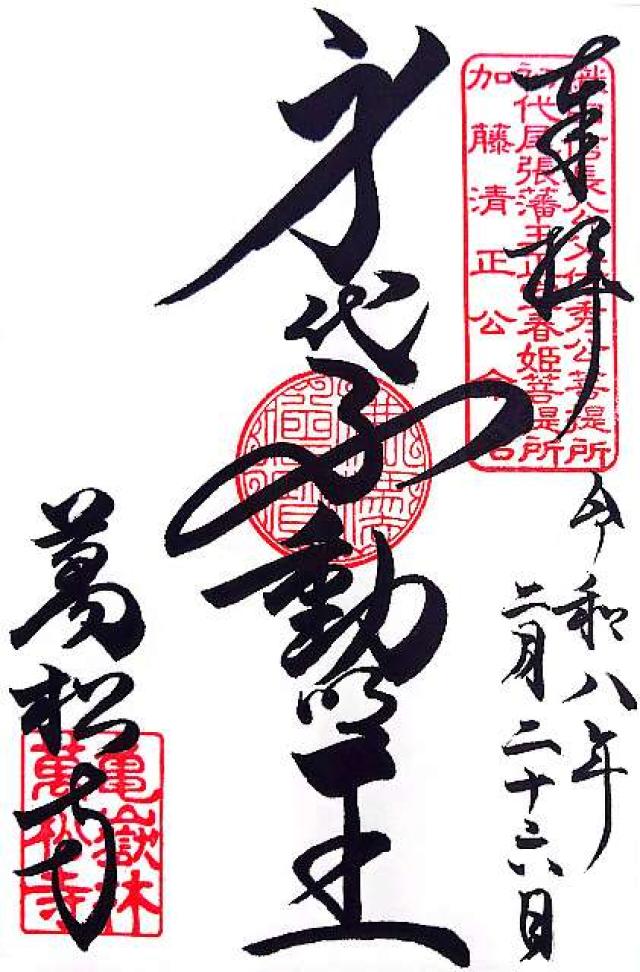 奉拝
織田信長公父信秀公菩提所
初代尾張藩主正室春姫菩提所
加藤清正公命名
令和八年
二月二十六日
身代不動明王
萬松寺
亀嶽林
萬松寺